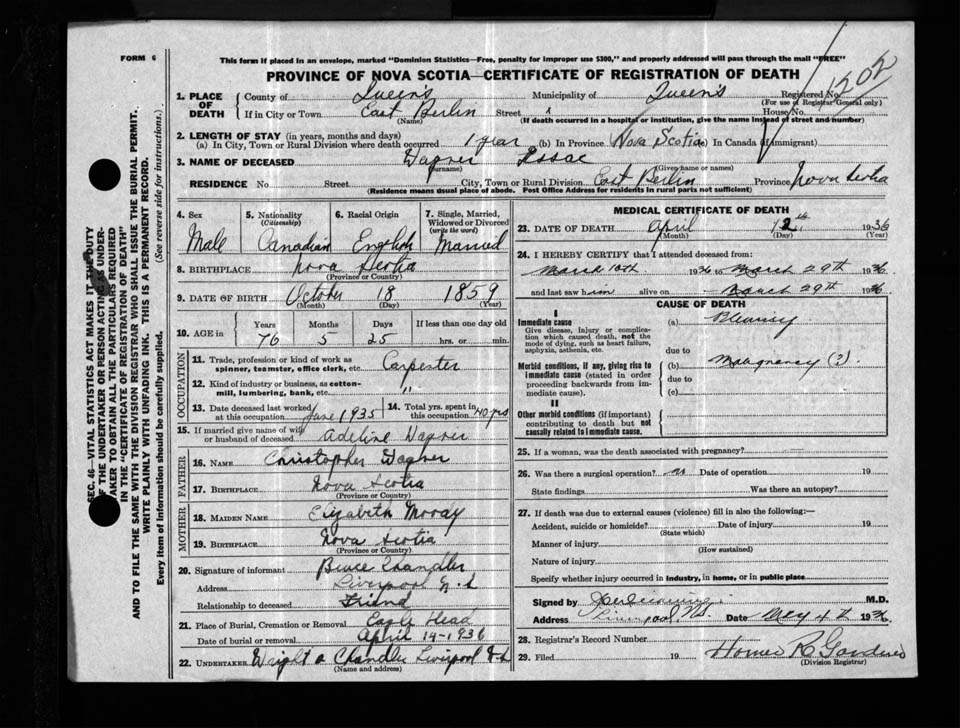 FORM 6
This form if placed in an envelope, marked "Dominion Statistics—Free, penalty for improper use $300," and properly addressed will pass through the mail "FREE"
PROVINCE OF NOVA SCOTIA—CERTIFICATE OF REGISTRATION OF DEATH
1. PLACE OF DEATH { County of Queens Municipality of Queens Registered No. 202
(For use of Registrar General only)
If in City or Town East Berlin Street House No.
(Name) (If death occurred in a hospital or institution, give the name instead of street and number)
2. LENGTH OF STAY (in years, months and days)
(a) In City, Town or Rural Division where death occurred 1 year (b) In Province Nova Scotia (c) In Canada (if immigrant)
3. NAME OF DECEASED Wagner Issac
(Surname) (Given name or names)
RESIDENCE No. Street City, Town or Rural Division East Berlin Province Nova Scotia
(Residence means usual place of abode. Post Office Address for residents in rural parts not sufficient)
4. Sex Male
5. Nationality (Citizenship) Canadian
6. Racial Origin English
7. Single, Married, Widowed or Divorced (write the word) Married
8. BIRTHPLACE Nova Scotia
(Province or Country)
9. DATE OF BIRTH October 18 1859
(Month) (Day) (Year)
10. AGE in Years Months Days If less than one day old
76 5 25 hrs. or min.
OCCUPATION
11. Trade, profession or kind of work as spinner, teamster, office clerk, etc. Carpenter
12. Kind of industry or business, as cotton-mill, lumbering, bank, etc. "
13. Date deceased last worked at this occupation June 1935
14. Total yrs. spent in this occupation 40 yrs
15. If married give name of wife or husband of deceased Adeline Wagner
FATHER
16. NAME Christopher Wagner
17. BIRTHPLACE Nova Scotia
(Province or Country)
MOTHER
18. MAIDEN NAME Elizabeth
19. BIRTHPLACE Nova Scotia
(Province or Country)
20. Signature of informant Bruce Chandler
Address Liverpool N.S
Relationship to deceased Friend
21. Place of Burial, Cremation or Removal Eagle Head
Date of burial or removal April 14-1936
22. UNDERTAKER Chandler Liverpool N.S
(Name and address)
MEDICAL CERTIFICATE OF DEATH
23. DATE OF DEATH April 12th 1936
(Month) (Day) (Year)
24. I HEREBY CERTIFY that I attended deceased from:
March 10th 1936 to March 29th 1936
and last saw him alive on March 29th 1936
CAUSE OF DEATH
I
Immediate cause
Give disease, injury or complication which caused death, not the mode of dying, such as heart failure, asphyxia, asthenia, etc.
(a) Pleurisy
due to
Morbid conditions, if any, giving rise to immediate cause (stated in order proceeding backwards from immediate cause).
(b) Malignancy (?)
due to
(c)
II
Other morbid conditions (if important) contributing to death but not causally related to immediate cause.
25. If a woman, was the death associated with pregnancy?
26. Was there a surgical operation? no Date of operation 19
State findings Was there an autopsy?
27. If death was due to external causes (violence) fill in also the following:—
Accident, suicide or homicide? Date of injury 19
(State which)
Manner of injury
(How sustained)
Nature of injury
Specify whether injury occurred in industry, in home, or in public place
Signed by M.D.
Address Liverpool, NS. Date May 4th 1936
28. Registrar's Record Number
29. Filed 19 Homer R Gardner
(Division Registrar)
SEC. 46—VITAL STATISTICS ACT MAKES IT THE DUTY
OF THE UNDERTAKER OR PERSON ACTING AS UNDER-
TAKER TO OBTAIN ALL THE PARTICULARS REQUIRED
IN THE "CERTIFICATE OF REGISTRATION OF DEATH"
AND TO FILE THE SAME WITH THE DIVISION REGISTRAR WHO SHALL ISSUE THE BURIAL PERMIT.
WRITE PLAINLY WITH UNFADING INK. THIS IS A PERMANENT RECORD.
Every item of information should be carefully supplied. (See reverse side for instructions.)